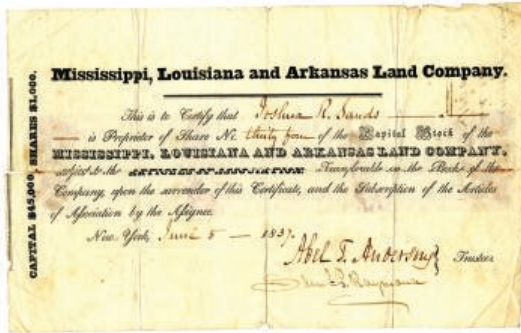 Mississippi, Louisiana and Arkansas Land Company.
This is to Certify that Joshua R. Sands
is Proprietor of Share No. thirty four of the Capital Stock of the
MISSISSIPPI, LOUISIANA AND ARKANSAS LAND COMPANY,
subject to the ARTICLES OF ASSOCIATION Transferable on the Books of the
Company, upon the surrender of this Certificate, and the Subscription of the Articles
of Association by the Assignee.
New-York, June 5 — 1837.
Abel T. Anderson
Trustees
Raymond
CAPITAL $45,000 SHARES $1,000.